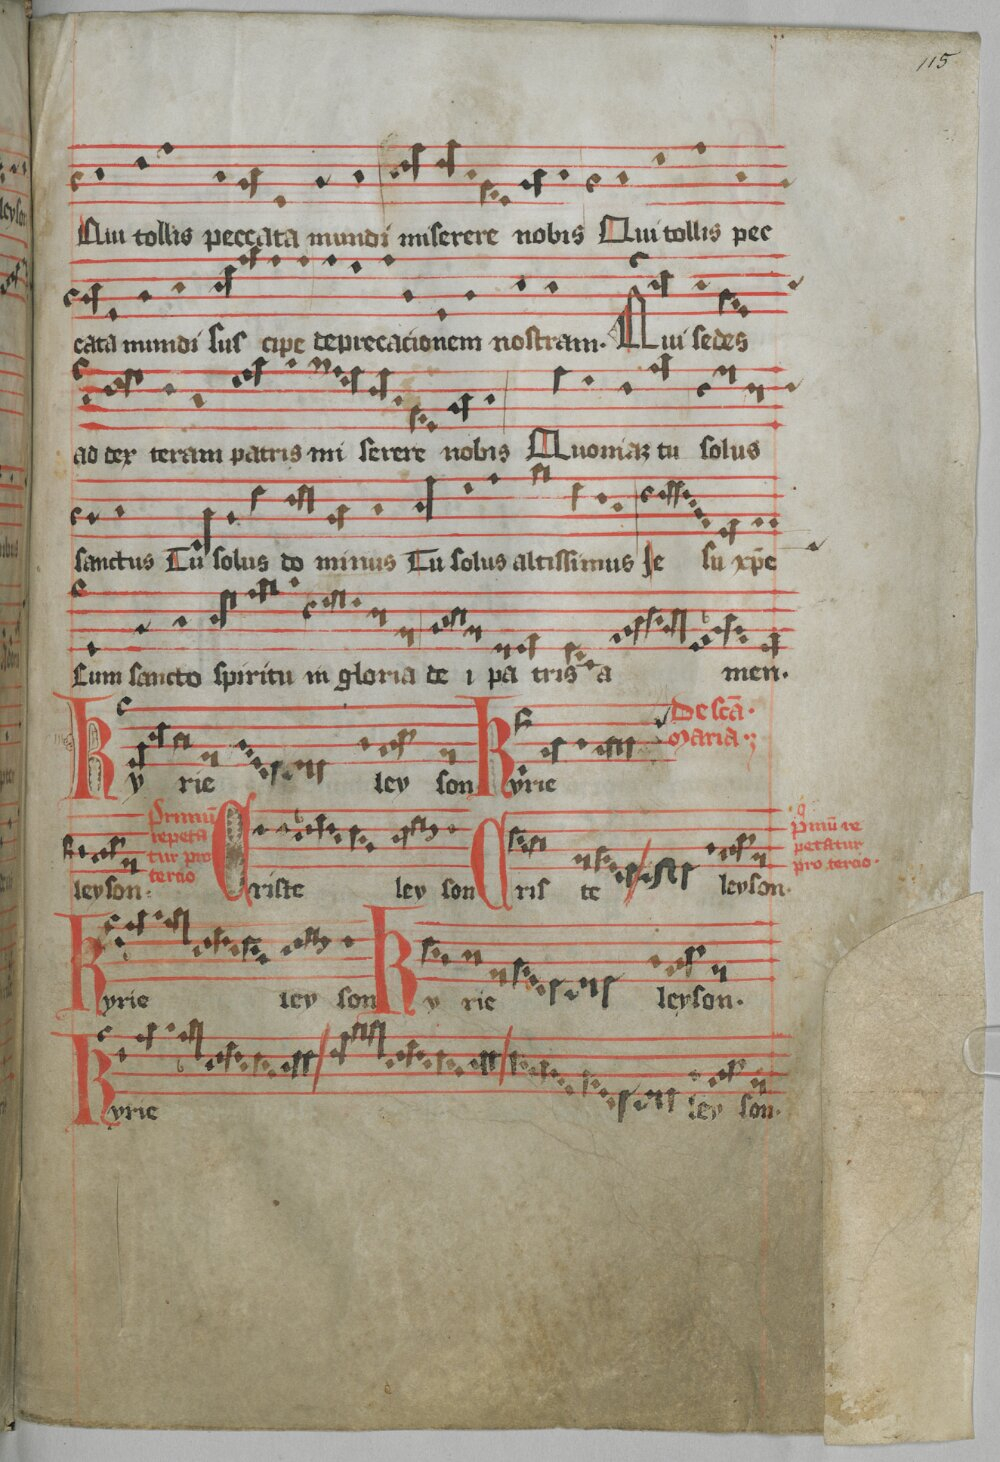 115
Qui tollis peccata mundi miserere nobis Qui tollis pec
cata mundi sus cipe deprecacionem nostram. Qui sedes
ad dex teram patris mi serere nobis Quoniaz tu solus
sanctus Tu solus do minus Tu solus altissimus Je su xp̄e
Cum sancto spiritu in gloria de i pa tris a men.
Ky rie ley son Kyrie
De scā.
Maria.
leyson.
Primū
repeta
tur pro
tercio
Criste ley son Cris te leyson.
Pmū re
petatur
pro tercio.
Kyrie ley son Ky rie leyson.
Kyrie ley son.